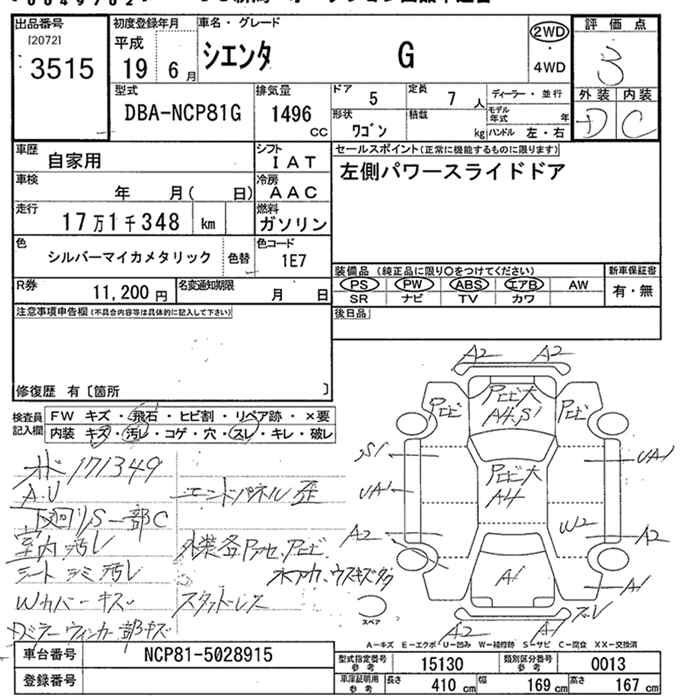 出品番号
[2072]
3515
初度登録年月
平成
19 6月
車名・グレード
シエンタ G
2WD
・
4WD
評価点
3
外装 内装
D C
型式
DBA-NCP81G
排気量
1496
CC
ドア
5
定員
7人
ディーラー・並行
形状
ワゴン
積載
kg
モデル年式
年
ハンドル 左・右
車歴
自家用
シフト
IAT
車検
年 月( 日)
冷房
AAC
走行
17万1千348 km
燃料
ガソリン
色
シルバーマイカメタリック
色替
色コード
1E7
R券
11,200円
名変通知期限
月 日
セールスポイント(正常に機能するものに限ります)
左側パワースライドドア
装備品(純正品に限り○をつけてください)
PS PW ABS エアB AW
SR ナビ TV カワ
新車保証書
有・無
後日品
注意事項申告欄(不具合内容等は具体的に記入して下さい)
修復歴 有〔箇所 〕
検査員記入欄
FW キズ・飛石・ヒビ割・リペア跡・×要
内装 キズ・汚レ・コゲ・穴・スレ・キレ・破レ
171349
A.U
エンドパネル歪
下廻りS一部C
室内汚レ
シートシミ汚レ
Wカバーキズ
スタッドレス
A2 A2
トビ大
A4.S1
S1
UA1
UA1
トビ大
A4
W2
A2
A2
A1
A1
A2
A1
スペア
A-キズ E-エクボ U-凹み W-補修跡 S-サビ C-腐食 XX-交換済
車台番号
NCP81-5028915
登録番号
型式指定番号
参考
15130
類別区分番号
参考
0013
車庫証明用
参考
長さ
410 cm
幅
169 cm
高さ
167 cm